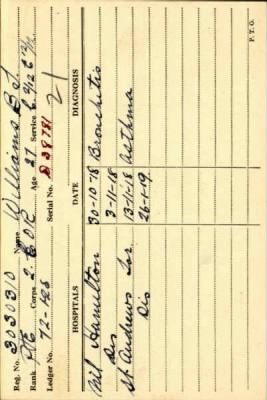 Reg. No. 3030310 Name Williams B. J.
Rank Pte Corps 2. C O R Age 27 Service C 2/12 E
Ledger No. 72-426 Serial No. D 39781
21
HOSPITALS DATE DIAGNOSIS
Mil Hamilton 30-10-18 Bronchitis
Dis 3-11-18
St Andrews Tor 13-11-18 Asthma
Dis 26-1-19.
P.T.O.